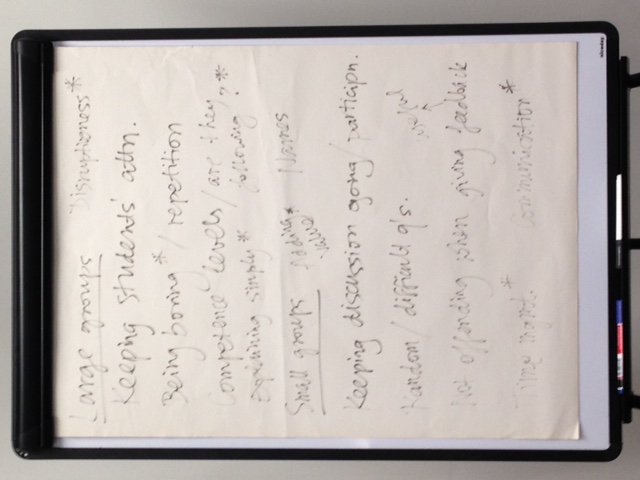 Large groups Disruptiveness*
Keeping students' attn.
Being boring* / repetition
Competence levels / are they following?*
Explaining simply*
Small groups Adding value* Names
Keeping discussion going / particip'n.
Random / difficult q's.
Not offending when giving useful feedback
Time mgmt.* Communication*